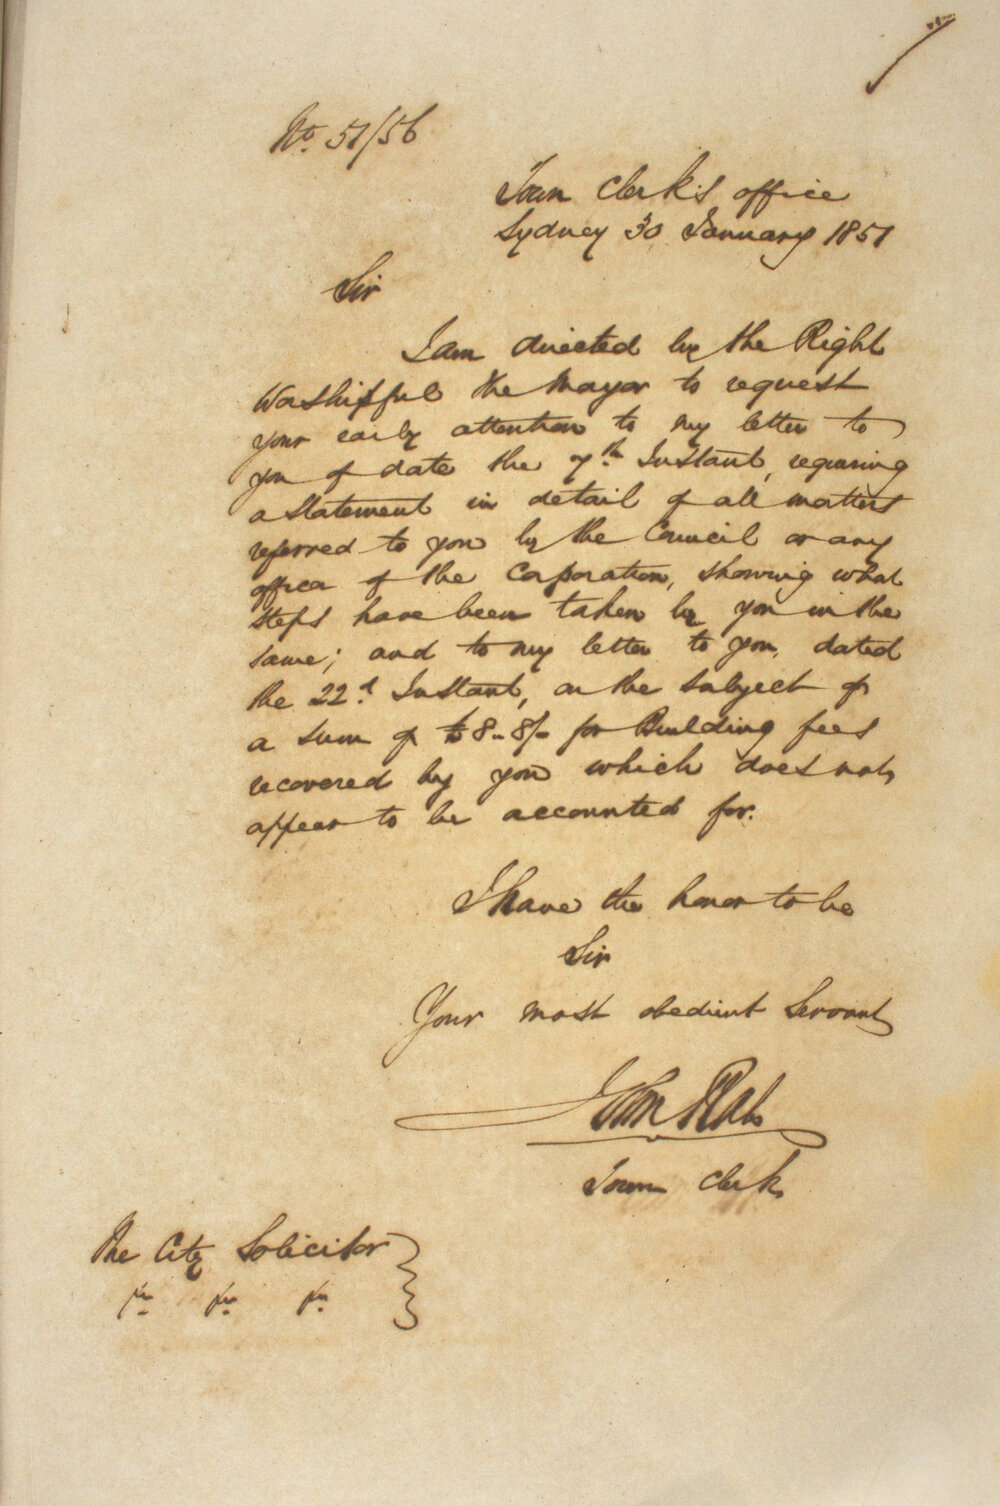 No. 51/56
Town Clerk's office
Sydney 30 January 1851
Sir
I am directed by the Right
Worshipful the Mayor to request
your early attention to my letter to
you of date the 7th Instant, requiring
a statement in detail of all matters
referred to you by the Council or any
officer of the Corporation, showing what
steps have been taken by you in the
same; and to my letter to you, dated
the 22d Instant, on the subject of
a sum of £8-8/- for Building fees
recovered by you which does not
appear to be accounted for.
I have the honor to be
Sir
Your most obedient Servant
John Rae
Town Clerk
The City Solicitor